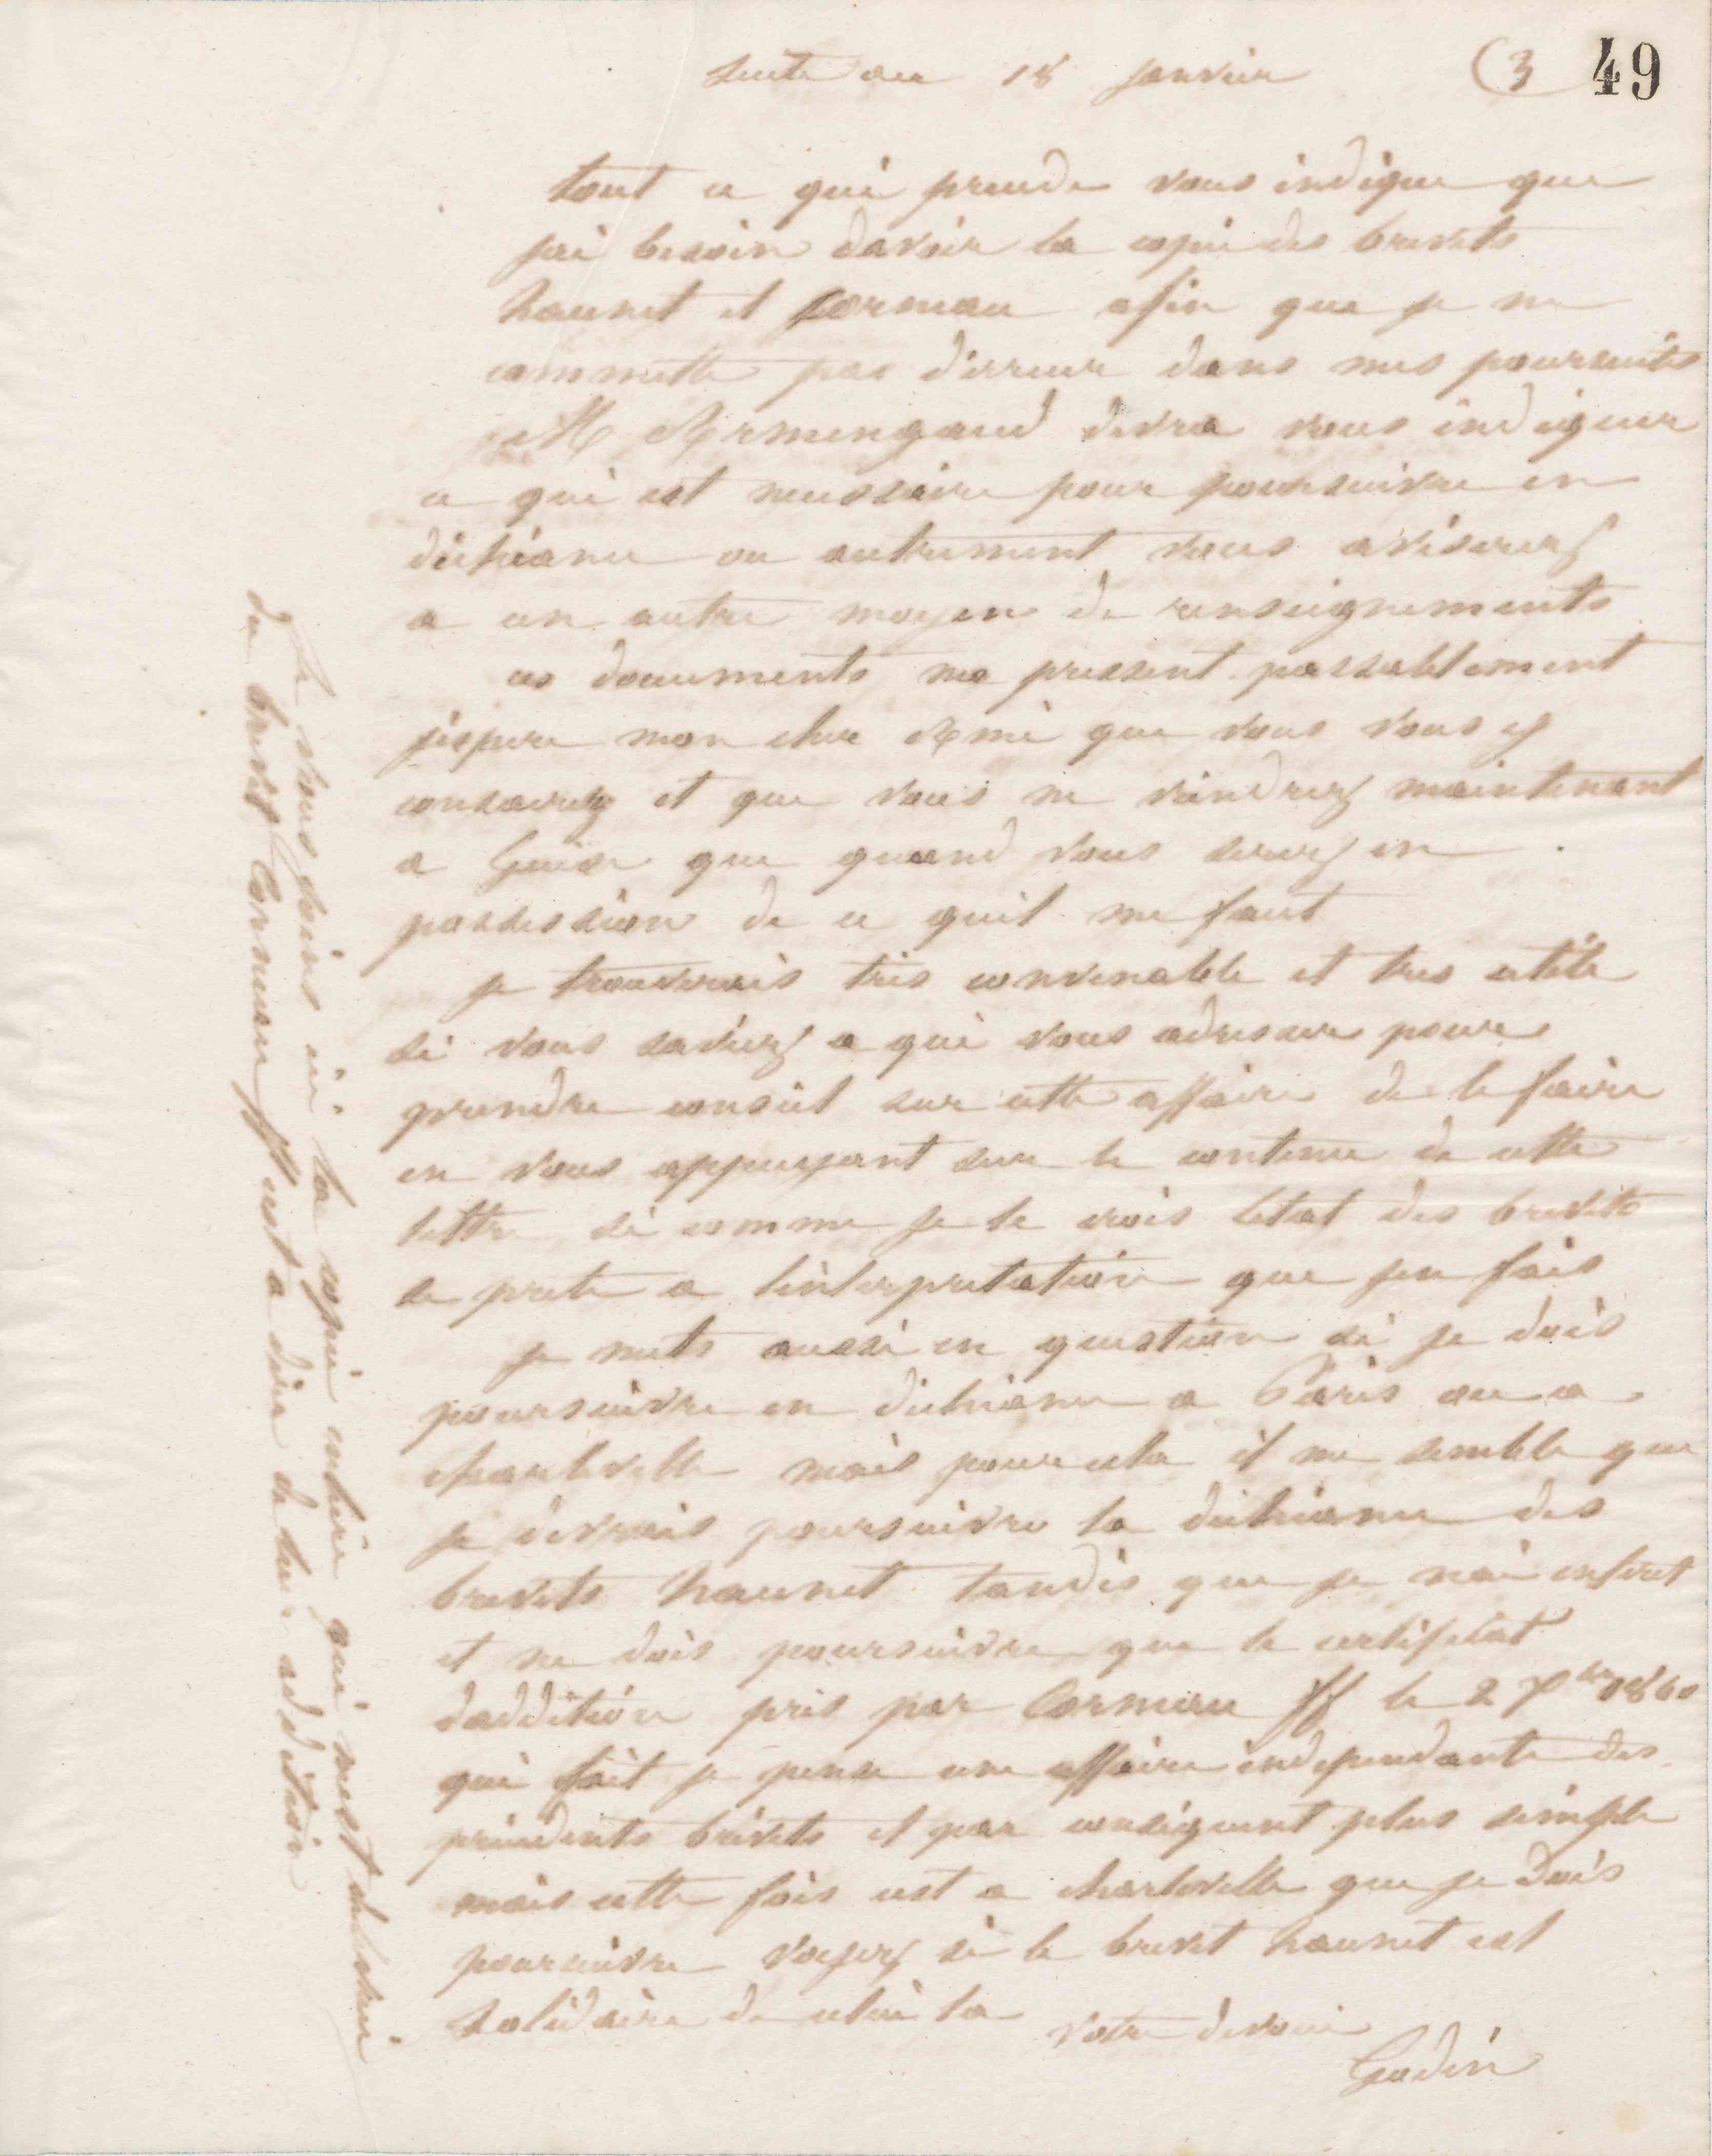 suite au 18 janvier (3 49
tout ce qui precede vous indique que
jai besoin davoir la copie des brevets
haunet et Corneau afin que je ne
commette pas d'erreur dans mes poursuites
M Armengaud devra vous indiquer
ce qui est necessaire pour poursuivre en
déchéance ou autrement vous aviserez
a un autre moyen de renseignements
ces documents me pressent passablement
jéspere mon cher Ami que vous vous y
consacrez et que vous ne viendrez maintenant
a Guise que quand vous serez en
possession de ce quil me faut
je trouverais très convenable et tres utile
si vous saviez a qui vous adresser pour
prendre conseil sur cette affaire de le faire
en vous appuyant sur le contenu de cette
lettre si comme je le crois letat des brevets
se prete a linterpretation que jen fais
je mets aussi en question si je dois
poursuivre en déchéance a Paris ou a
charleville mais pour cela il me semble que
je devrais poursuivre la déchéance des
brevets haunet tandis que je nai interet
et ne dois poursuivre que le certificat
daddition pris par Corneau ff le 2 7bre 1860
qui fait je pense une affaire independante des
précédents brevets et par conséquent plus simple
mais cette fois cest a charleville que je dois
poursuivre voyez si le brevet haunet est
solidaire de celui la
votre devoué
Godin
Je vous joins ici la copie entière qui mest
du brevet Corneau ff cest a dire de leur addition